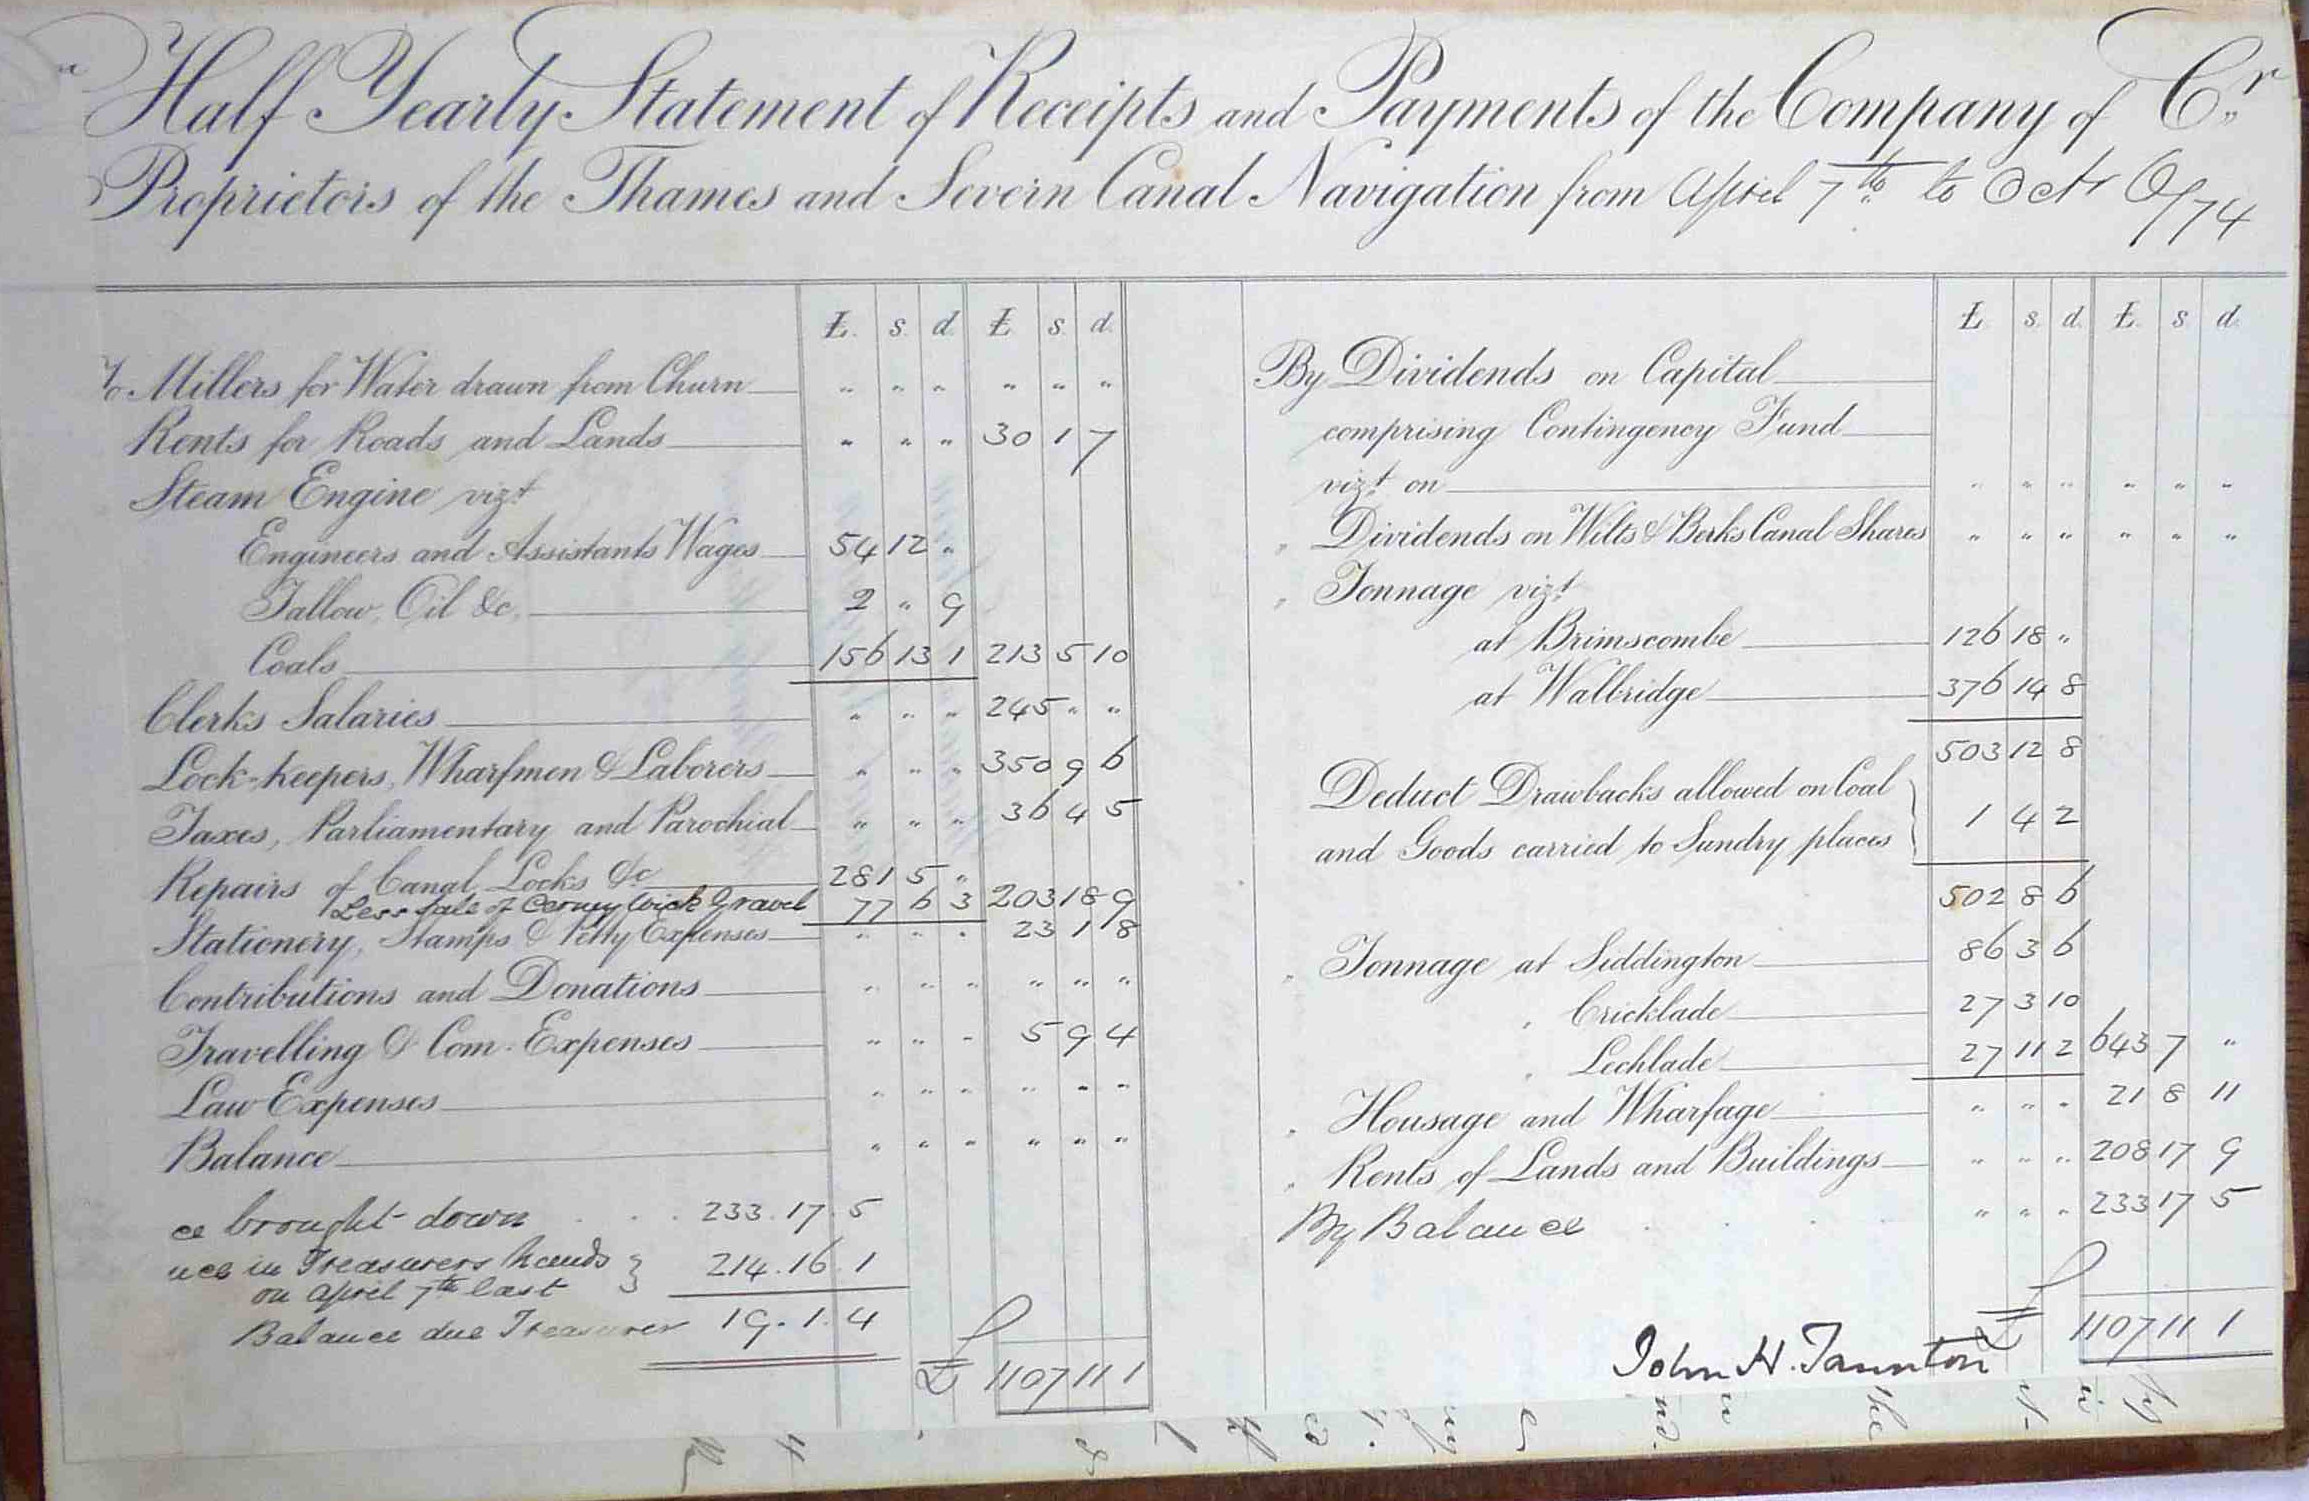 Half Yearly Statement of Receipts and Payments of the Company of Cr.
Proprietors of the Thames and Severn Canal Navigation from April 7th to Octr 6/74
£. s. d. £ s d.
To Millers for Water drawn from Churn " " " " " "
Rents for Roads and Lands " " " 30 1 7
Steam Engine vizt
Engineers and Assistants Wages 54 12 "
Tallow, Oil &c. 2 " 9
Coals 156 13 1 213 5 10
Clerks Salaries " " " 245 " "
Lock-keepers, Wharfmen & Laborers " " " 350 9 6
Taxes, Parliamentary and Parochial " " " 36 4 5
Repairs of Canal Locks &c 281 5 "
Less Sale of Cerney Wick Gravel 77 6 3 203 18 9
Stationery, Stamps & Petty Expenses " " " 23 1 8
Contributions and Donations " " " " " "
Travelling & Com. Expenses " " " 5 9 4
Law Expenses " " " " " "
Balance " " " " " "
ce brought down . . . 233.17.5
nce in Treasurers hands } 214.16.1
on April 7th last
Balance due Treasurer 19.1.4
£ 1107 11 1
£ s. d. £. s d.
By Dividends on Capital
comprising Contingency Fund
vizt on " " " " " "
" Dividends on Wilts & Berks Canal Shares " " " " " "
" Tonnage vizt
at Brimscombe 126 18 "
at Wallbridge 376 14 8
503 12 8
Deduct Drawbacks allowed on Coal
and Goods carried to Sundry places } 1 4 2
502 8 6
" Tonnage at Siddington 86 3 6
" Cricklade 27 3 10
" Lechlade 27 11 2 643 7 "
" Housage and Wharfage " " " 21 8 11
" Rents of Lands and Buildings " " " 208 17 9
By Balance . . . . " " " 233 17 5
£ 1107 11 1
John H. Taunton